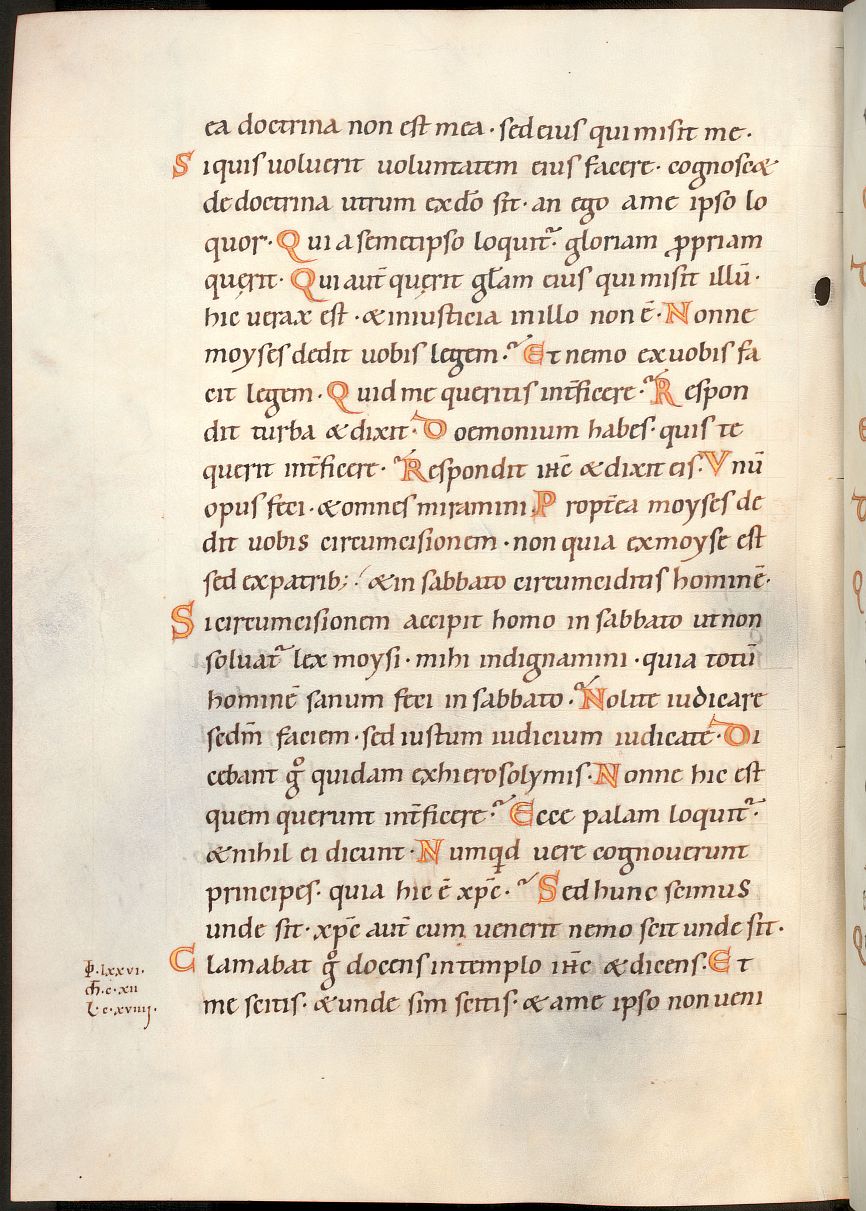 ea doctrina non est mea · sed eius qui misit me ·
Siquis uoluerit uoluntatem eius facere · cognoscet
de doctrina utrum ex do̅ sit · an ego ame ipso lo
quor · Qui a semetipso loquit᷑ · gloriam ꝓpriam
querit · Qui aut̅ querit gl̅am eius qui misit illu̅ ·
hic uerax est · & iniusticia in illo non e̅ · Nonne
moyses dedit uobis legem · Et nemo ex uobis fa
cit legem · Quid me queritis int̅ficere · Respon
dit turba & dixit · Doemonium habes · quis te
querit int̅ficere · Respondit ih̅c & dixit eis · Vnu̅
opus feci · & omnes miramini · Propt̅ea moyses de
dit uobis circumcisionem · non quia ex moyse est
sed ex patrib; · & in sabbato circumciditis homine̅ ·
Si circumcisionem accipit homo in sabbato ut non
soluat᷑ lex moysi · mihi indignamini · quia totu̅
homine̅ sanum feci in sabbato · Nolite iudicare
sedm̅ faciem · sed iustum iudicium iudicate · Di
cebant gͦ quidam ex hierosolymis · Nonne hic est
quem querunt int̅ficere · Ecce palam loquit᷑ ·
& nihil ei dicunt · Numqd̅ uere cognouerunt
principes · quia hic e̅ xp̅c · Sed hunc scimus
unde sit · xp̅c aut̅ cum uenerit nemo scit unde sit ·
Clamabat gͦ docens in templo ih̅c & dicens · Et
me scitis · & unde sim scitis · & ame ipso non ueni
·lxxvi·
·c·xii
·c·xviiij·